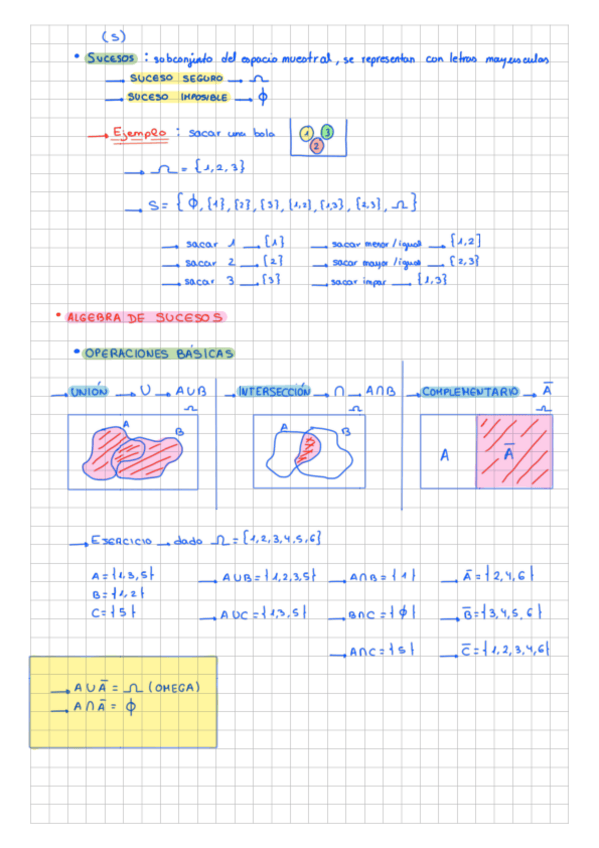 (S)
• SUCESOS : subconjunto del espacio muestral, se representan con letras mayusculas
→ SUCESO SEGURO → Ω
→ SUCESO IMPOSIBLE → ϕ
→ Ejemplo : sacar una bola 1 3 2
→ Ω = {1,2,3}
→ S = { ϕ, {1}, {2}, {3}, {1,2}, {1,3}, {2,3}, Ω }
→ sacar 1 → {1} → sacar menor/igual → {1,2}
→ sacar 2 → {2} → sacar mayor/igual → {2,3}
→ sacar 3 → {3} → sacar impar → {1,3}
• ALGEBRA DE SUCESOS
• OPERACIONES BÁSICAS
→ UNIÓN → U → AUB → INTERSECCIÓN → ∩ → A∩B → COMPLEMENTARIO → Ā
Ω Ω Ω
A B A B A Ā
→ EJERCICIO → dado Ω = {1,2,3,4,5,6}
A = {1,3,5} → AUB = {1,2,3,5} → A∩B = {1} → Ā = {2,4,6}
B = {1,2}
C = {5} → AUC = {1,3,5} → B∩C = {ϕ} → B̄ = {3,4,5,6}
→ A∩C = {5} → C̄ = {1,2,3,4,6}
→ A U Ā = Ω (OMEGA)
→ A ∩ Ā = ϕ